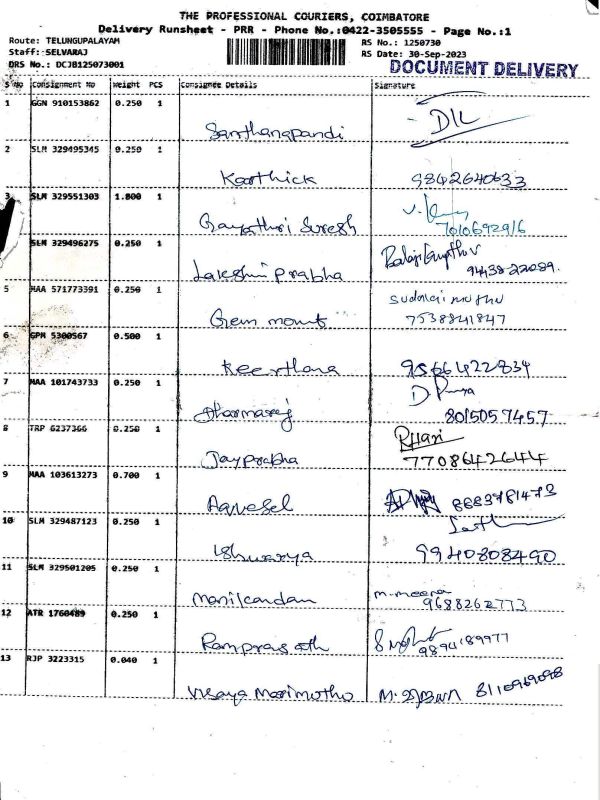 THE PROFESSIONAL COURIERS, COIMBATORE
Delivery Runsheet - PRR - Phone No.:0422-3505555 - Page No.:1
Route: TELUNGUPALAYAM RS No.: 1250730
Staff: SELVARAJ RS Date: 30-Sep-2023
DRS No.: DCJB125073001 DOCUMENT DELIVERY
S No Consignment No Weight PCS Consignee Details Signature
1 GGN 910153862 0.250 1
Santhanapandi
2 SLM 329495345 0.250 1
Karthick 9842640633
3 SLM 329551303 1.800 1
Gayathiri Suresh 7010692916
SLM 329496275 0.250 1
Lakshmi prabha 94438-22089.
5 MAA 571773391 0.250 1 Sudalai muthu
Gem mount 7538841847
6 GPM 5300567 0.500 1
Keerthana 9566422834
7 MAA 101743733 0.250 1
Dharmaraj 8015057457
8 TRP 6237366 0.250 1 R.Hari
Jayprabha 7708642644
9 MAA 103613273 0.700 1
8883781473
10 SLM 329487123 0.250 1
Ishwarya 9940808490
11 SLM 329501205 0.250 1
Manikandan m.meena 9688262773
12 ATR 1760489 0.250 1
Ramprasath 9894189977
13 RJP 3223315 0.040 1
Vijaya Marimuthu 8110969098